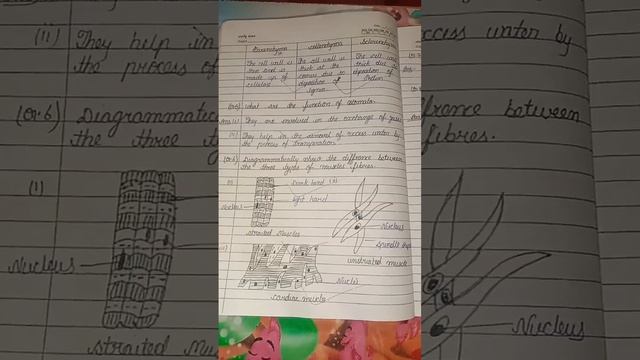 Parenchyma collenchyma Sclerenchyma
The cell wall is thin and is made up of cellulose
The cell wall is thick at the corners due to deposition of
The cell wall thick due to deposition of
What are the function of stomata
Ans (i) They are involved in the exchange of gases
(ii) They help in the removal of excess water by
the process of transpiration
(Qr.6) Diagrammatically show the diffrance between
the three types of muscles fibres.
(i)
Dark band
light band
Nucleus
Nucleus
striated Muscles
spindle
unstriated muscle
Nuclei
cardiac muscle
(ii) They help in
the process of
(Qr.6) Diagrammatic
the three t
(i)
Nucleus
straited Mu
excess water by
diffrance between
fibres.
Nucleus